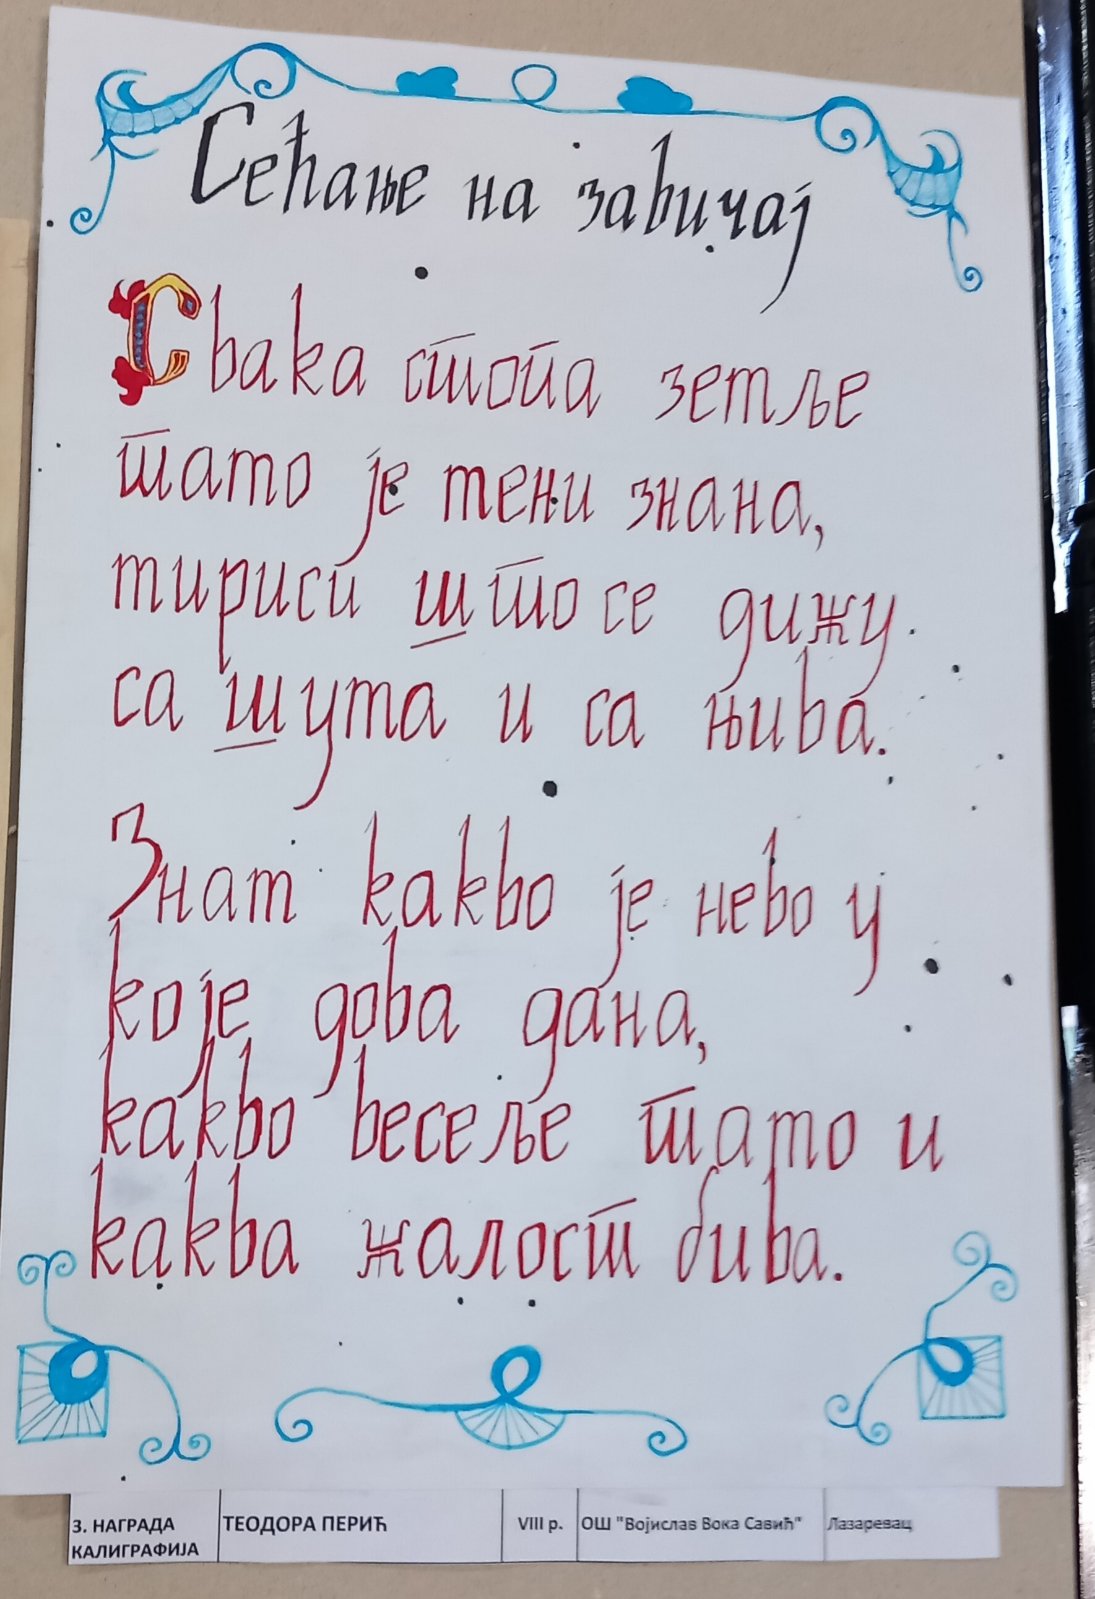 Сећање на завичај
Свака стопа земље
тамо је мени знана,
мириси што се дижу
са шума и са њива.
Знам какво је небо у
које доба дана,
какво весеље тамо и
каква жалост бива.
3. НАГРАДА КАЛИГРАФИЈА ТЕОДОРА ПЕРИЋ VIII р. ОШ "Војислав Вока Савић" Лазаревац